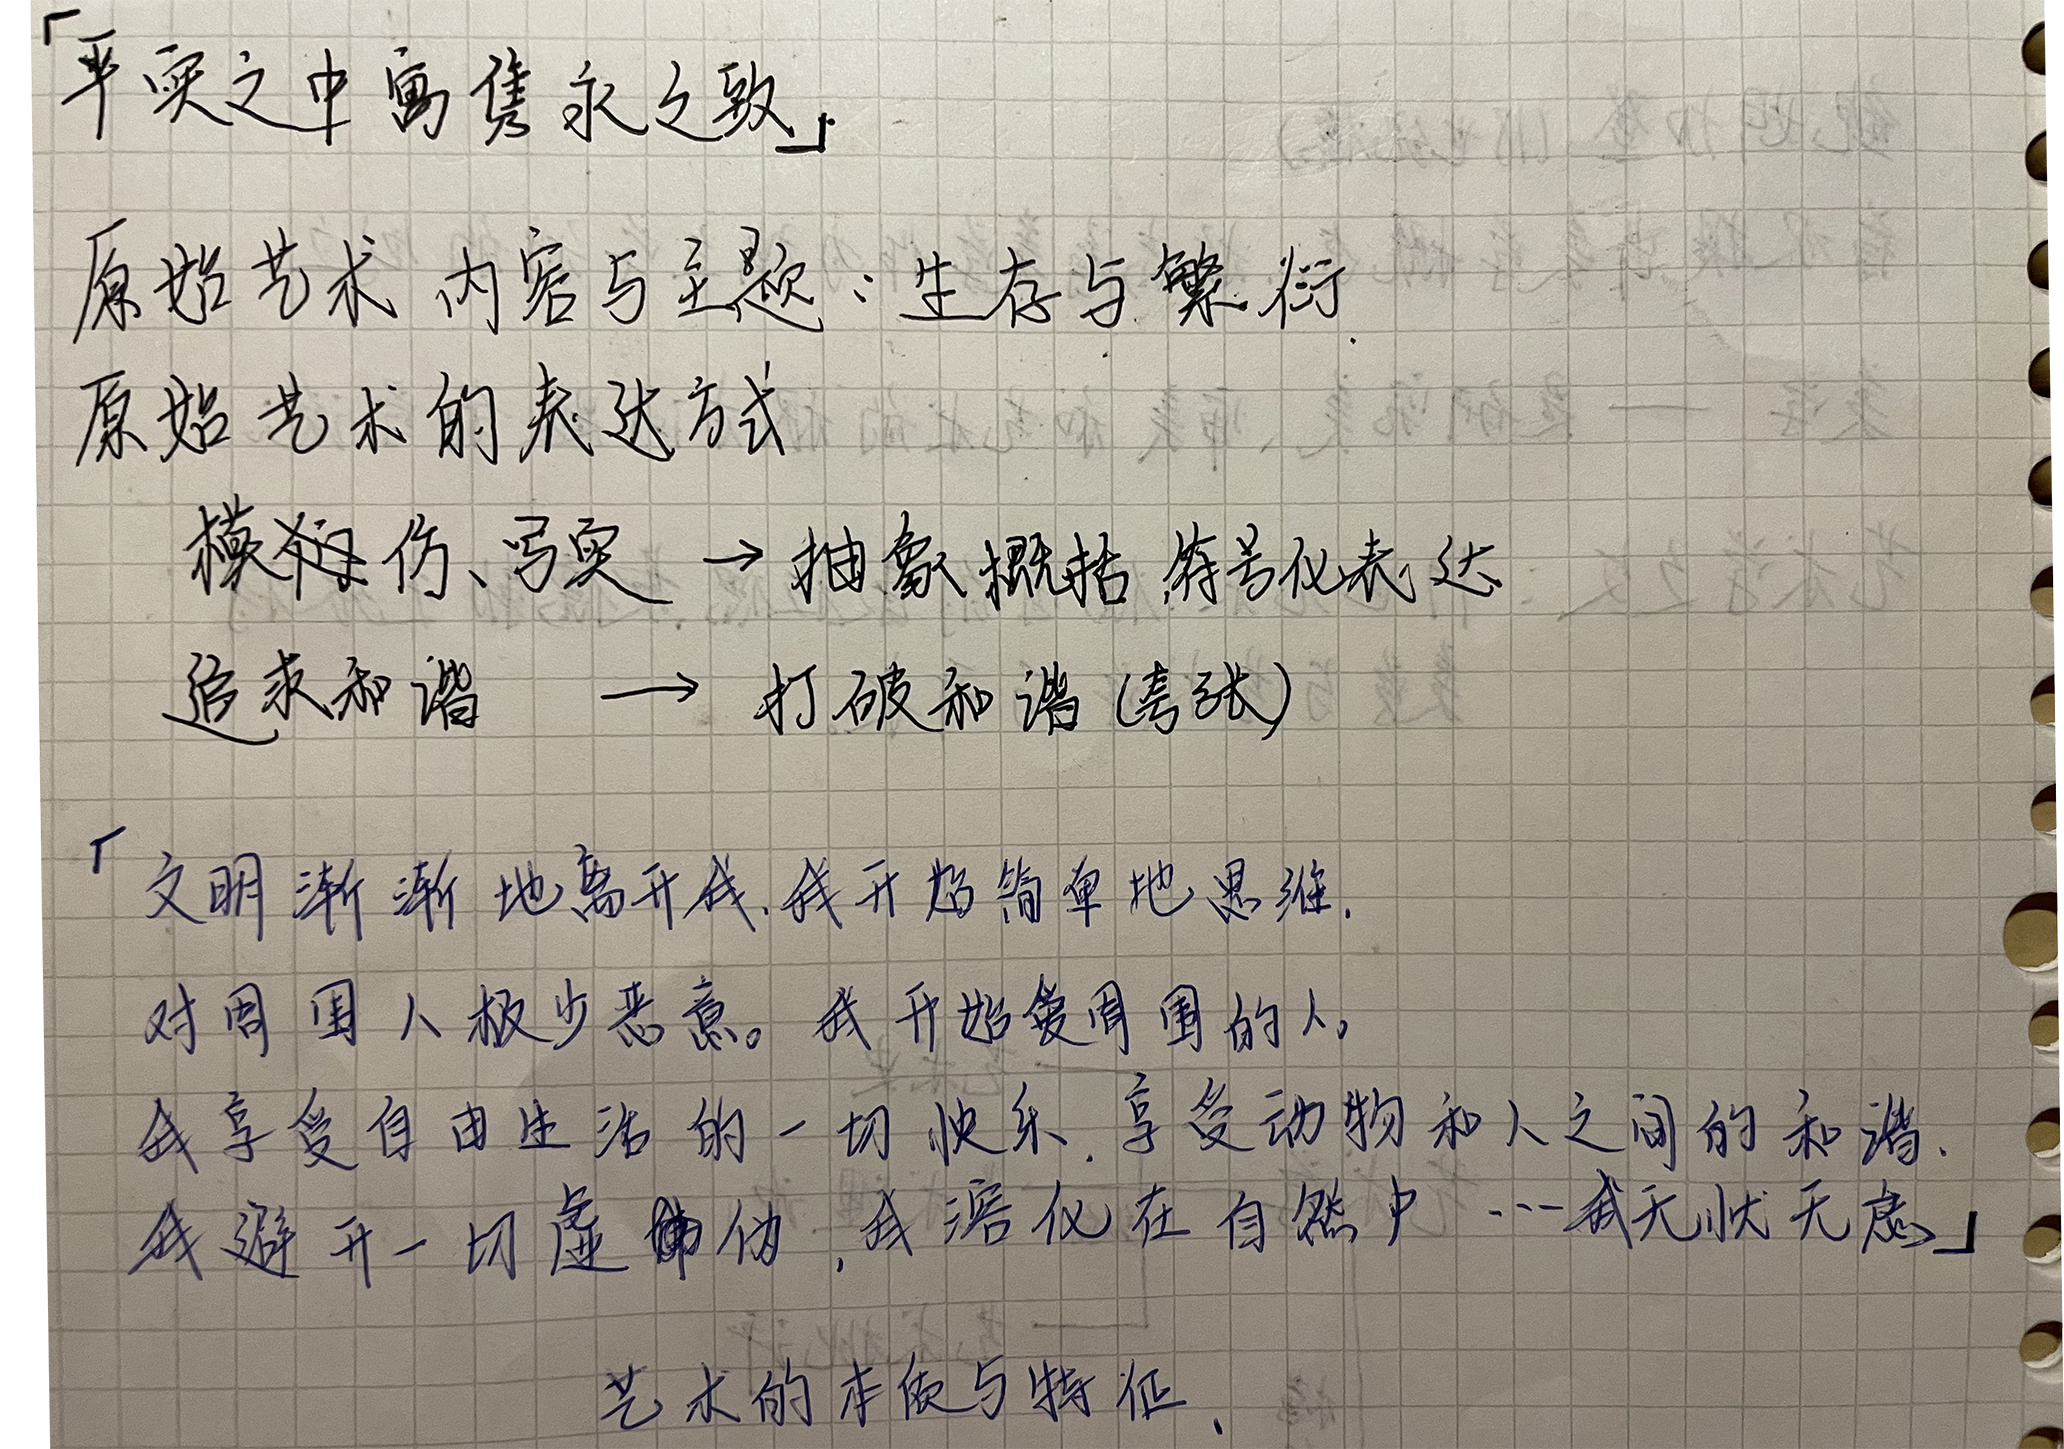 「平实之中寓隽永之致」
原始艺术 内容与主题：生存与繁衍.
原始艺术的表达方式
模仿、写实 → 抽象概括 符号化表达
追求和谐 → 打破和谐(夸张)
「文明渐渐地离开我、我开始简单地思维.
对周围人极少恶意。我开始爱周围的人。
我享受自由生活的一切快乐.享受动物和人之间的和谐.
我避开一切虚伪,我溶化在自然中……我无忧无虑」
艺术的本质与特征.